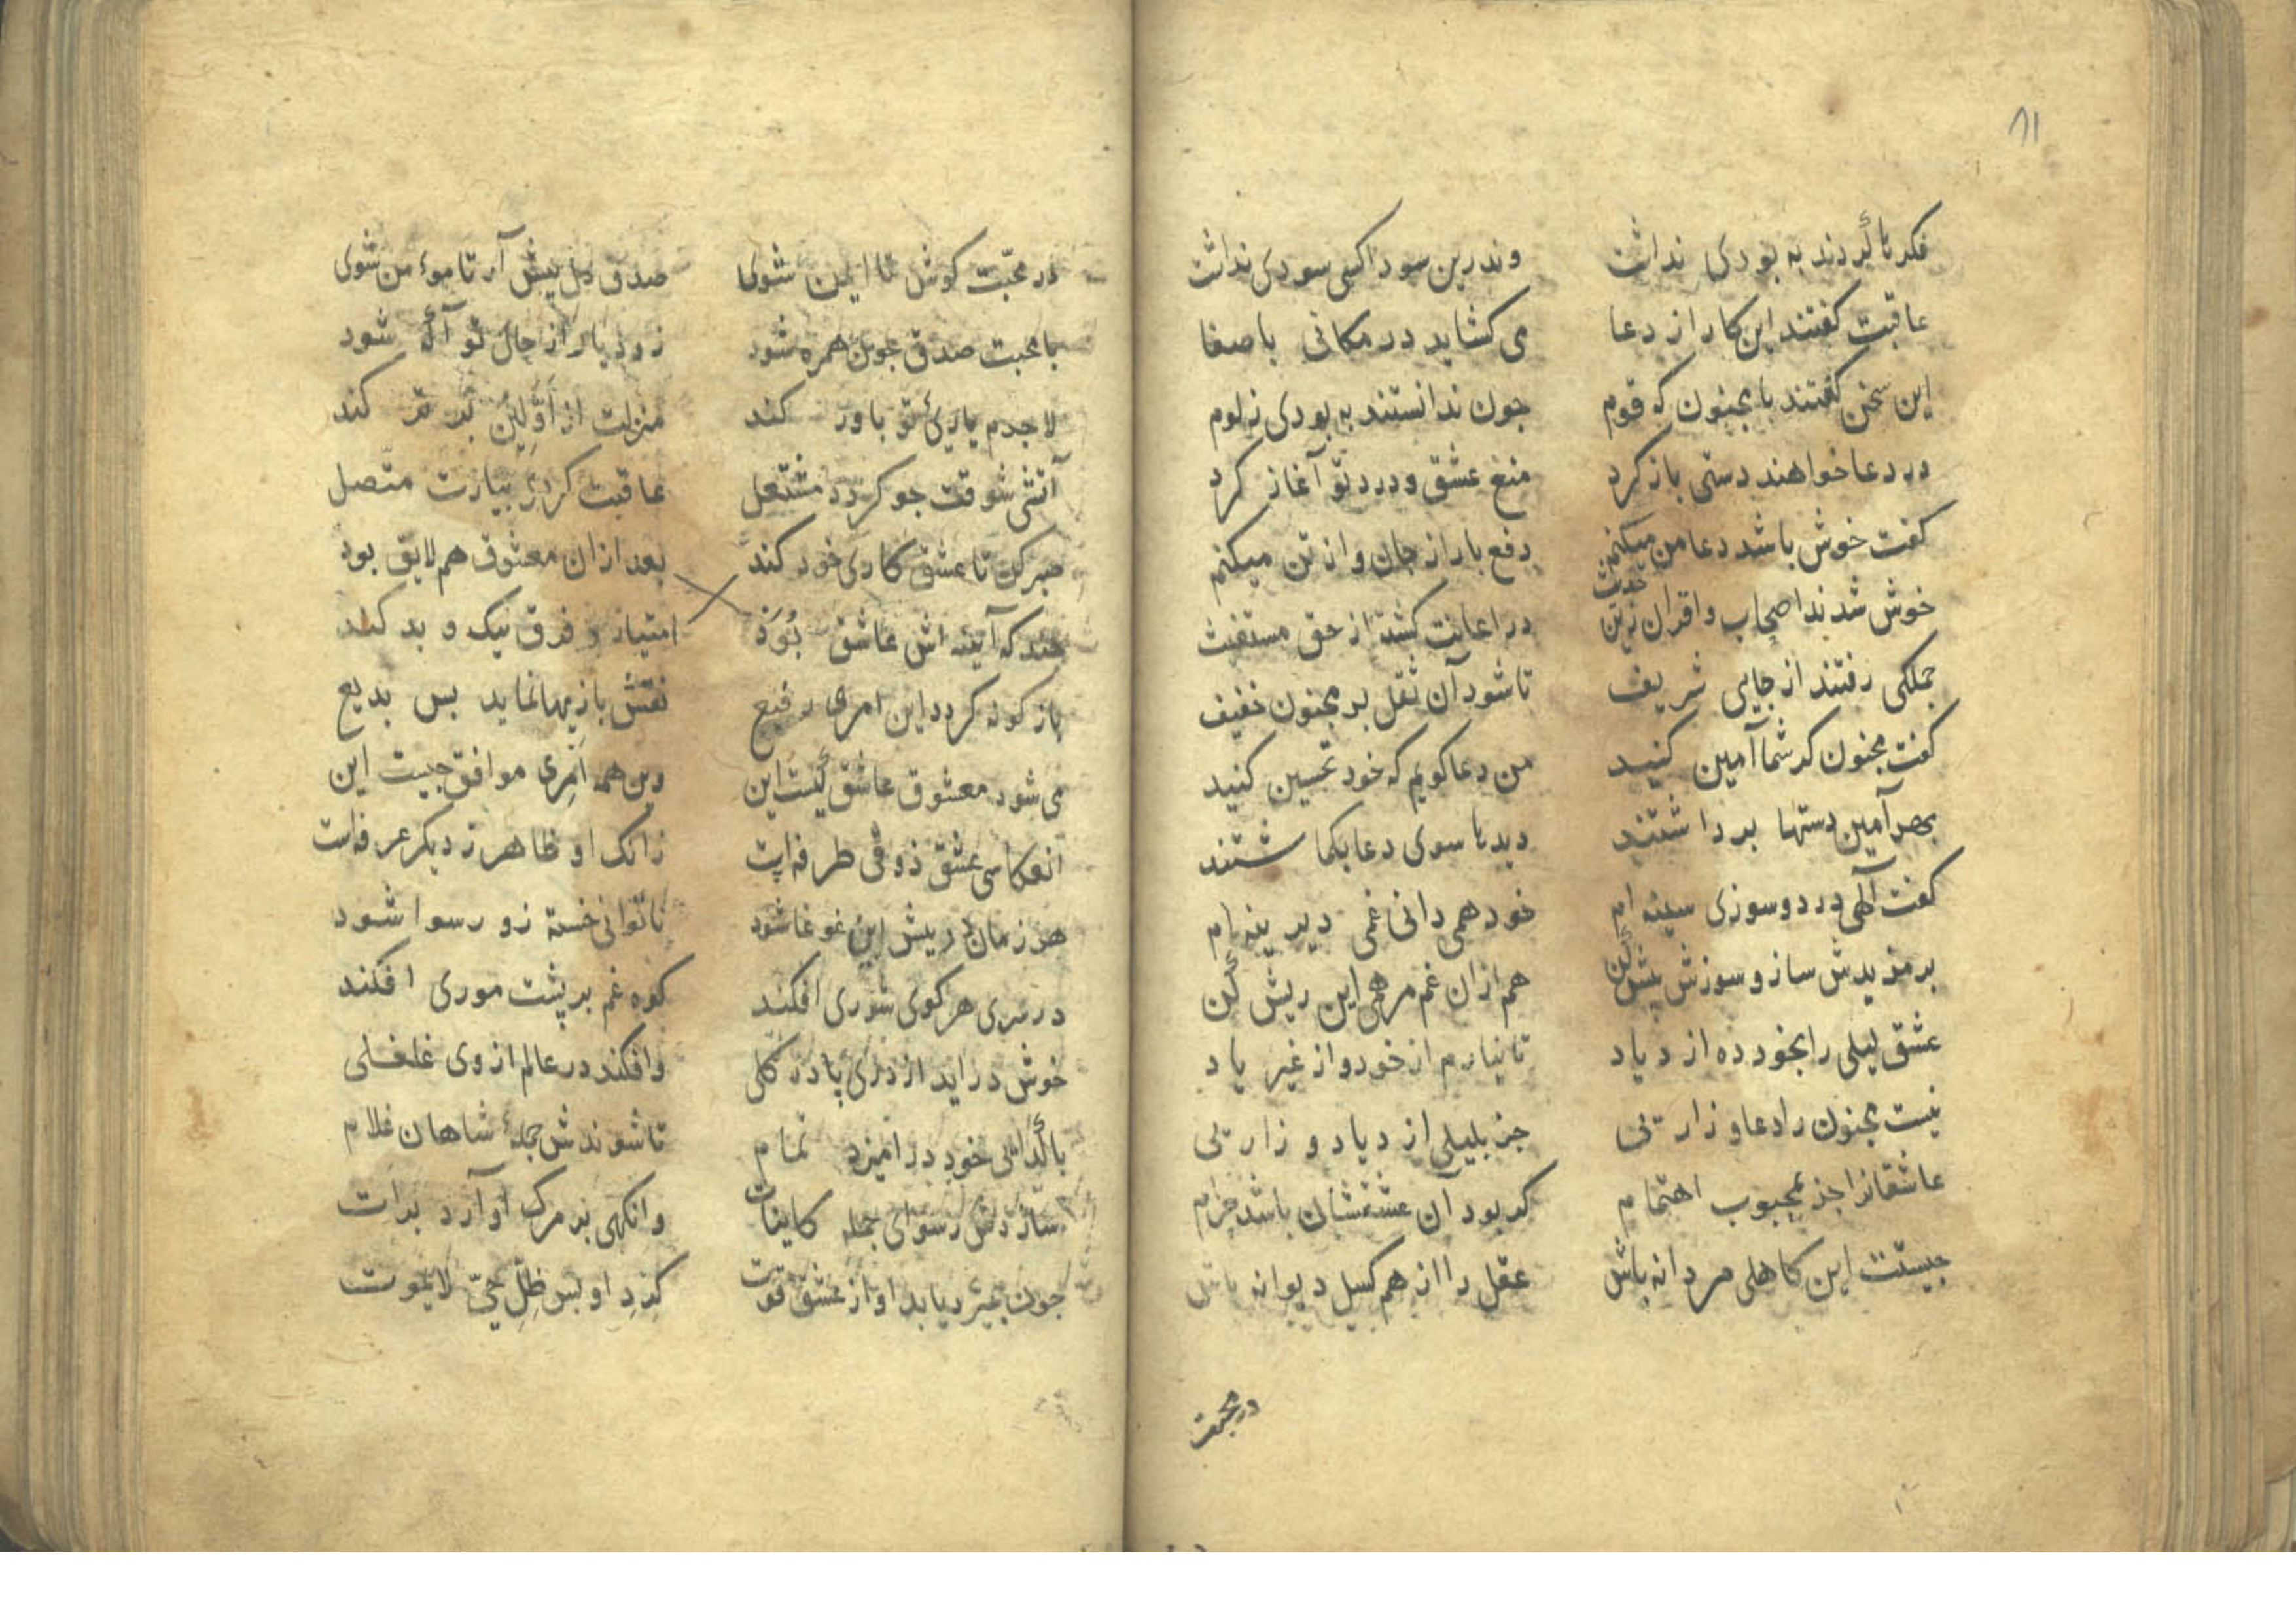 ۸۱
فکرتا کردند به بودی نداشت وندرین سودا کسی سودی نداشت
عاقبت کفتند این کار از دعا می کشاید در مکانی باصفا
این سخن کفتند با مجنون که قوم جون ندانستند به بودی ز لوم
در دعا خواهند دستی باز کرد منع عشق و درد تو آغاز کرد
کفت خوش باشد دعا من میکنم دفع بار از جان و از تن میکنم
خوش شدند اصحاب و اقران زین حدیث در اعانت کشته از حق مستغیث
جملکی رفتند از جایی شریف تا شود آن ثقل بر مجنون خفیف
کفت مجنون کر شما آمین کنید من دعا کویم که خود تحسین کنید
بهر آمین دستها برداشتند دیدتا سوی دعا بکماشتند
کفت آلهی درد و سوزی سینه ام خود همی دانی غمی دیرینه ام
بر مزیدش ساز و سوزش بیش کن هم ازان غم مرهمی این ریش کن
عشق لیلی را بخود ده ازدیاد تا نیارم از خود و از غیر یاد
نیست مجنون را دعا و زارئی جز بلیلی ازدیاد و زارئی
عاشقانرا جز بمحبوب اهتمام کر بود آن عشقشان باشد حرام
جیست این کاهلی مردانه باش عقل را از هم کسل دیوانه باش
در محبت
در محبت کوش تا ایمن شوی صدق دل پیش آر تا موءمن شوی
با محبت صدق جون همره شود زود یار از حال تو آکه شود
لاجرم یاریٔ تو باور کند منزلت از اوّلین برتر کند
آتشی شوقت جو کردد مشتعل عاقبت کردی بیارت متصل
صبر کن تا عشق کاری خود کند بعد ازان معشوق هم لایق بود
جند که آینه اش عاشق بُوَد امتیاز و فرق نیک و بد کند
باز کونه کردد این امری رفیع نقش بازیها نماید بس بدیع
می شود معشوق عاشق کیست این وین همه اَمرِی موافق جیست این
انعکاسی عشق ذوقی طرفه است زانک او ظاهر ز دیکر عرفه است
هر زمان در پیش این غوغا شود ناتوانی خسته زو رسوا شود
در سری هر کوی شوری افکند کوه غم بر پشت موری افکند
خوش دراید از دری پا در کلی وافکند در عالم از وی غلغلی
با کدائی خود درامیزد تمام تا شوندش جملهٔ شاهان غلام
سازدش رسوای جمله کاینات وانکهی بر مرک او آرد برات
جون بمیرد یابد او از عشق قوت کردِ او بس ظِلّ حَیّ لایموت